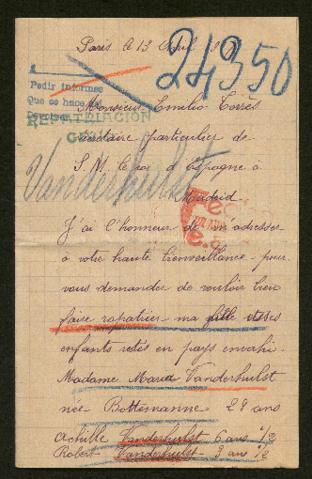 Paris le 13 Avril
24350
Pedir informes
Que se hace
REPATRIACION
Monsieur Emilio Torrès
secrétaire particulier de
S. M. le roi d'Espagne à
Madrid
Vanderhulst
J'ai l'honneur de m'adresser
à votre haute bienveillance pour
vous demander de vouloir bien
faire rapatrier ma fille et ses
enfants restés en pays envahi.
Madame Maria Vanderhulst
née Bottemanne 29 ans
Achille Vanderhulst 6 ans 1/2
Robert Vanderhulst 3 ans 1/2